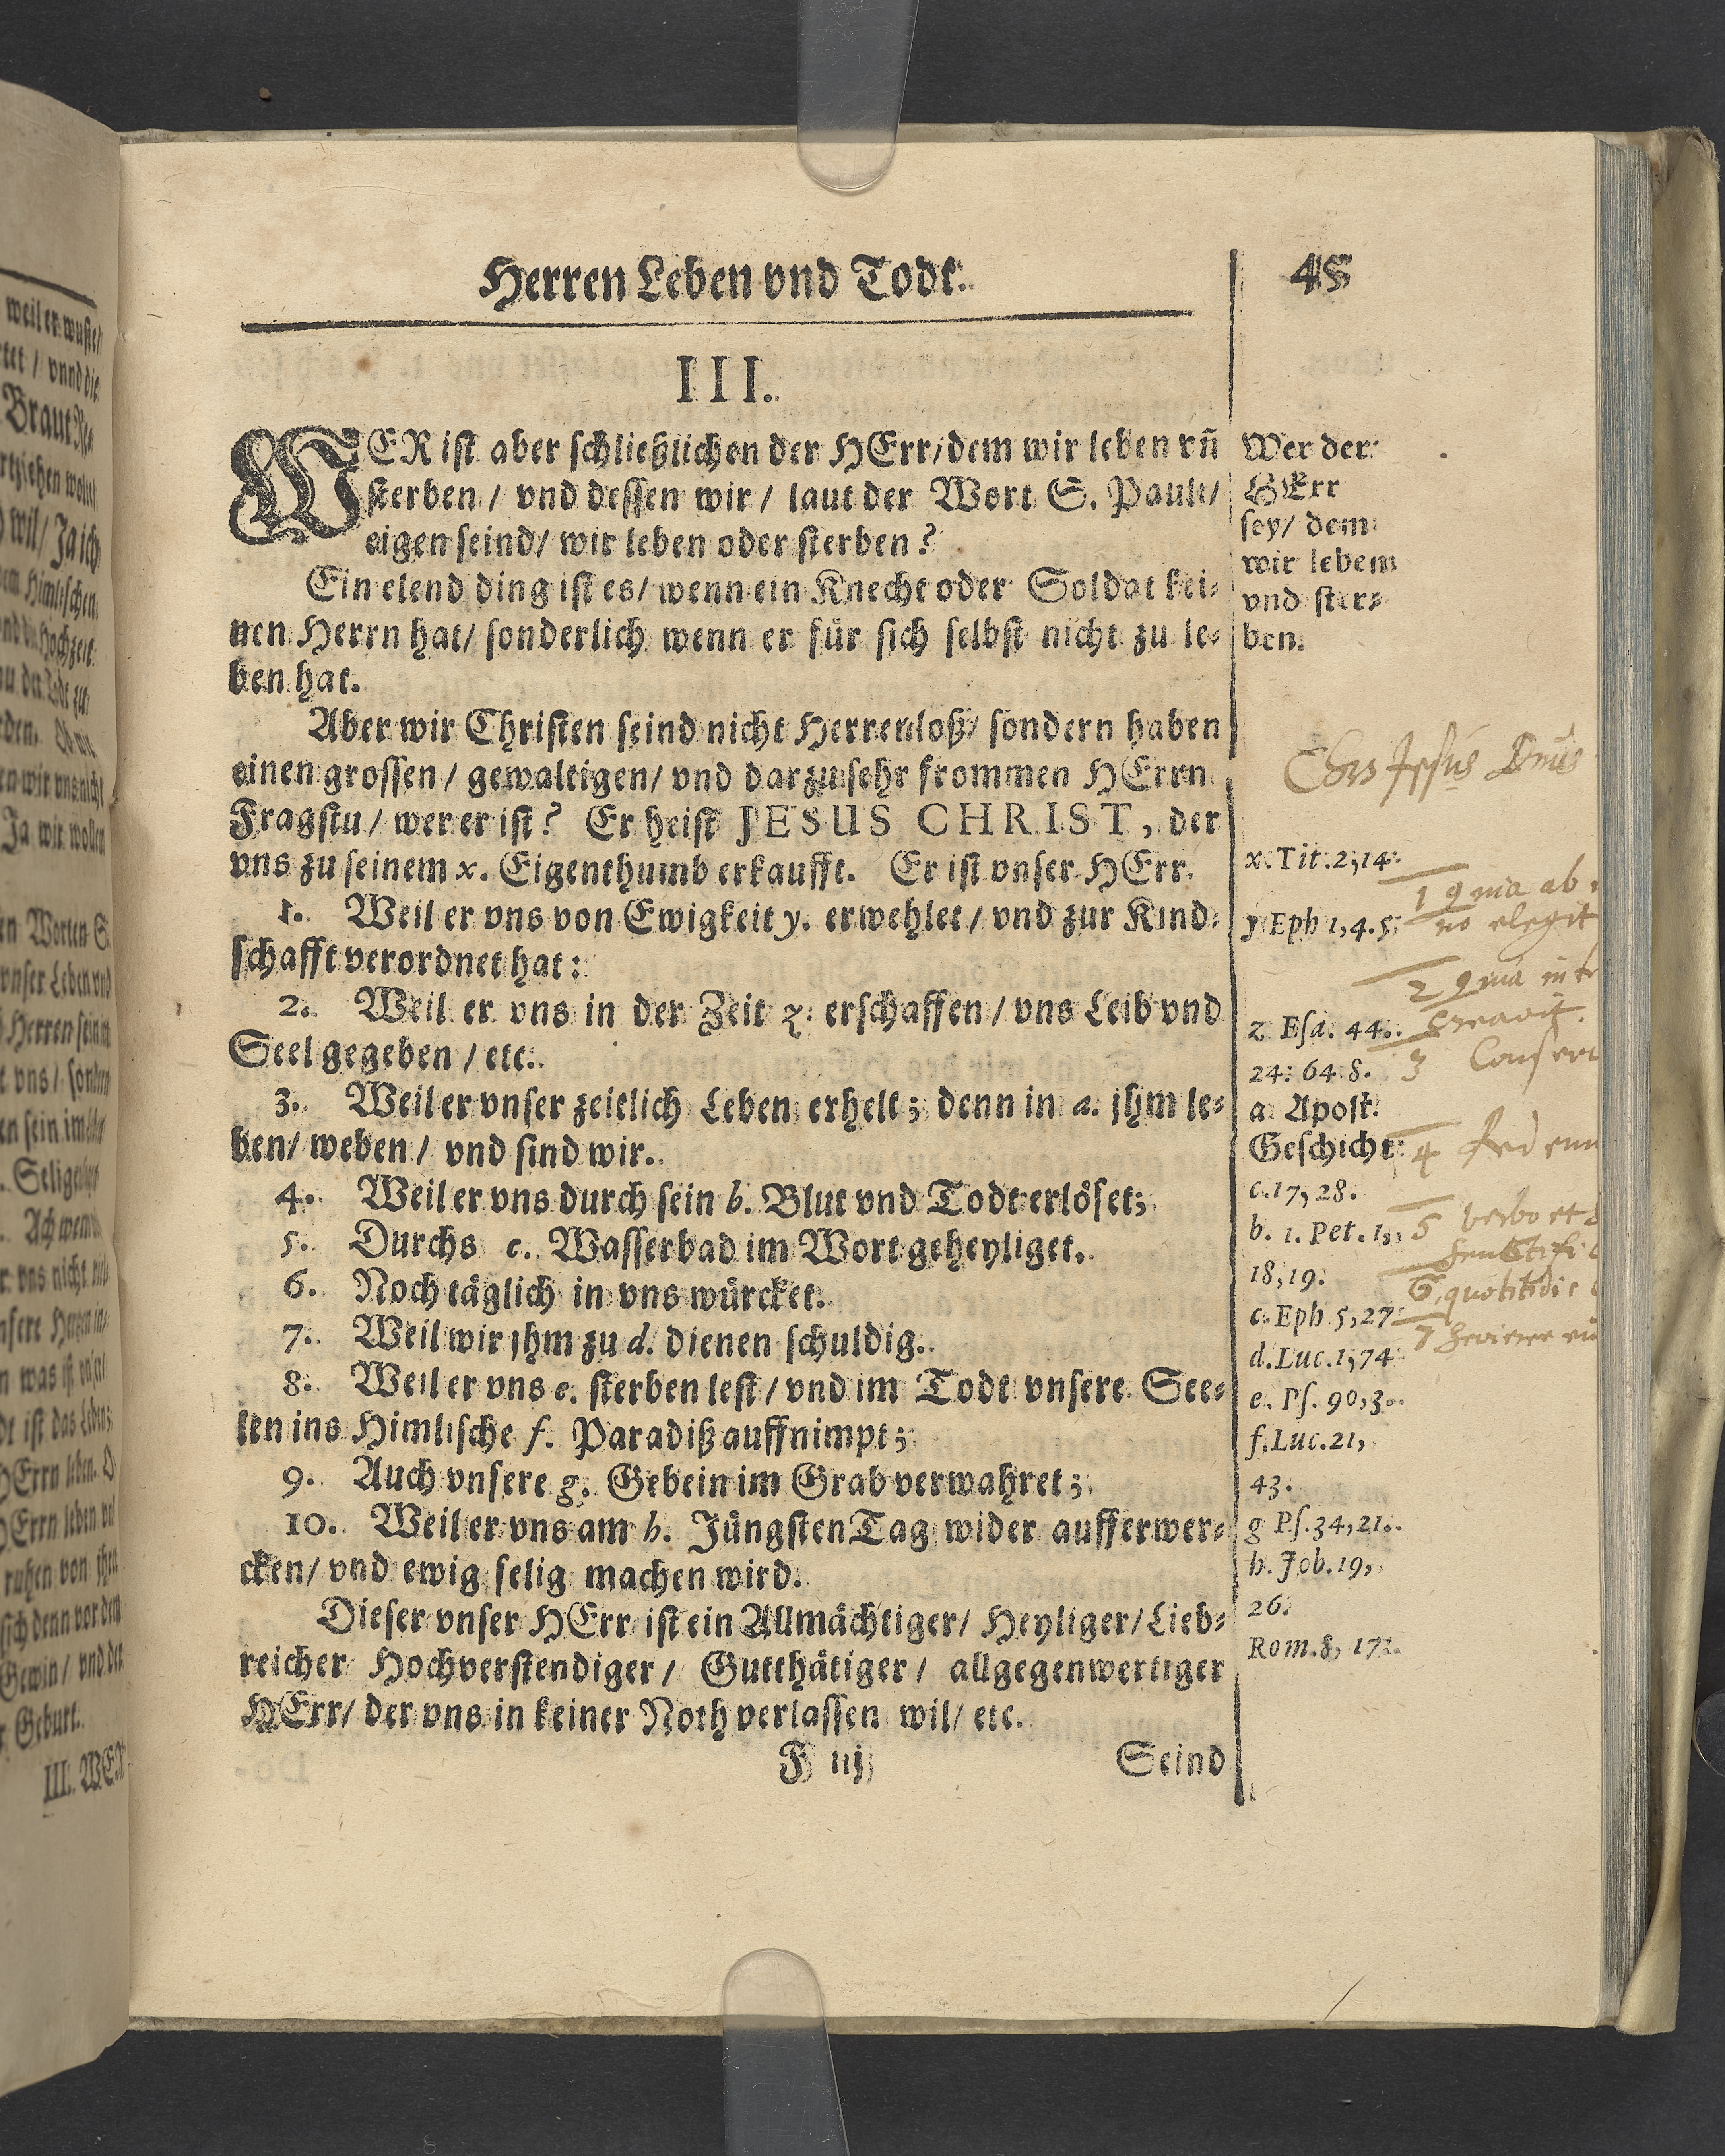 Herren Leben vnd Todt. 45
III.
WER ist aber schließlichen der HErr/dem wir leben vñ
sterben / vnd dessen wir / laut der Wort S. Pauli/
eigen seind/ wir leben oder sterben?
Ein elend ding ist es/ wenn ein Knecht oder Soldat kei-
nen Herrn hat/ sonderlich wenn er für sich selbst nicht zu le-
ben hat.
Aber wir Christen seind nicht Herrenloß/ sondern haben
einen grossen / gewaltigen/ vnd darzu sehr frommen HErrn
Fragstu / wer er ist? Er heist JESUS CHRIST, der
vns zu seinem x. Eigenthumb erkaufft. Er ist vnser HErr.
1. Weil er vns von Ewigkeit y. erwehlet / vnd zur Kind-
schafft verordnet hat:
2. Weil er vns in der Zeit z. erschaffen / vns Leib vnd
Seel gegeben / etc.
3. Weil er vnser zeitlich Leben erhelt; denn in a. jhm le-
ben/ weben / vnd sind wir.
4. Weil er vns durch sein b. Blut vnd Todt erlöset;
5. Durchs c. Wasserbad im Wort geheyliget.
6. Noch täglich in vns würcket.
7. Weil wir jhm zu d. dienen schuldig.
8. Weil er vns e. sterben lest / vnd im Todt vnsere See-
len ins Himlische f. Paradiß auffnimpt;
9. Auch vnsere g. Gebein im Grab verwahret;
10. Weil er vns am h. Jüngsten Tag wider aufferwer-
cken/ vnd ewig selig machen wird.
Dieser vnser HErr ist ein Allmächtiger/ Heyliger/ Lieb-
reicher Hochverstendiger / Gutthätiger / allgegenwertiger
HErr/ der vns in keiner Noth verlassen wil/ etc.
F iij Seind
Wer der
HErr
sey/ dem
wir leben
vnd ster-
ben.
x. Tit. 2, 14.
y Eph 1, 4. 5.
z Esa. 44.
24. 64. 8.
a Apost.
Geschicht
c. 17, 28.
b. 1. Pet. 1,
18, 19.
c. Eph 5, 27
d. Luc. 1, 74
e. Ps. 90, 3.
f. Luc. 21,
43.
g Ps. 34, 21.
h. Job. 19,
26.
Rom. 8, 17.
Jesus
1 quia ab
no elegit
2 quia in
creavit.
3
4
5 verbo et
6 quotitidie
7
weil er wuste/
vnnd die
Braut
wil/ Ja ich
Himlischen
Hochzeit
Ja wir wollen
Worten S.
vnser Leben vnd
Herren sein
vns / sondern
sein im
Seligen
Ach wenn
vns nicht
vnsere Hertzen in
was ist
ist das Leben
HErrn leben. O
HErrn leben
ruhen von jhr
sich denn vor dem
Gewin/ vnd der
Geburt.
III. WER